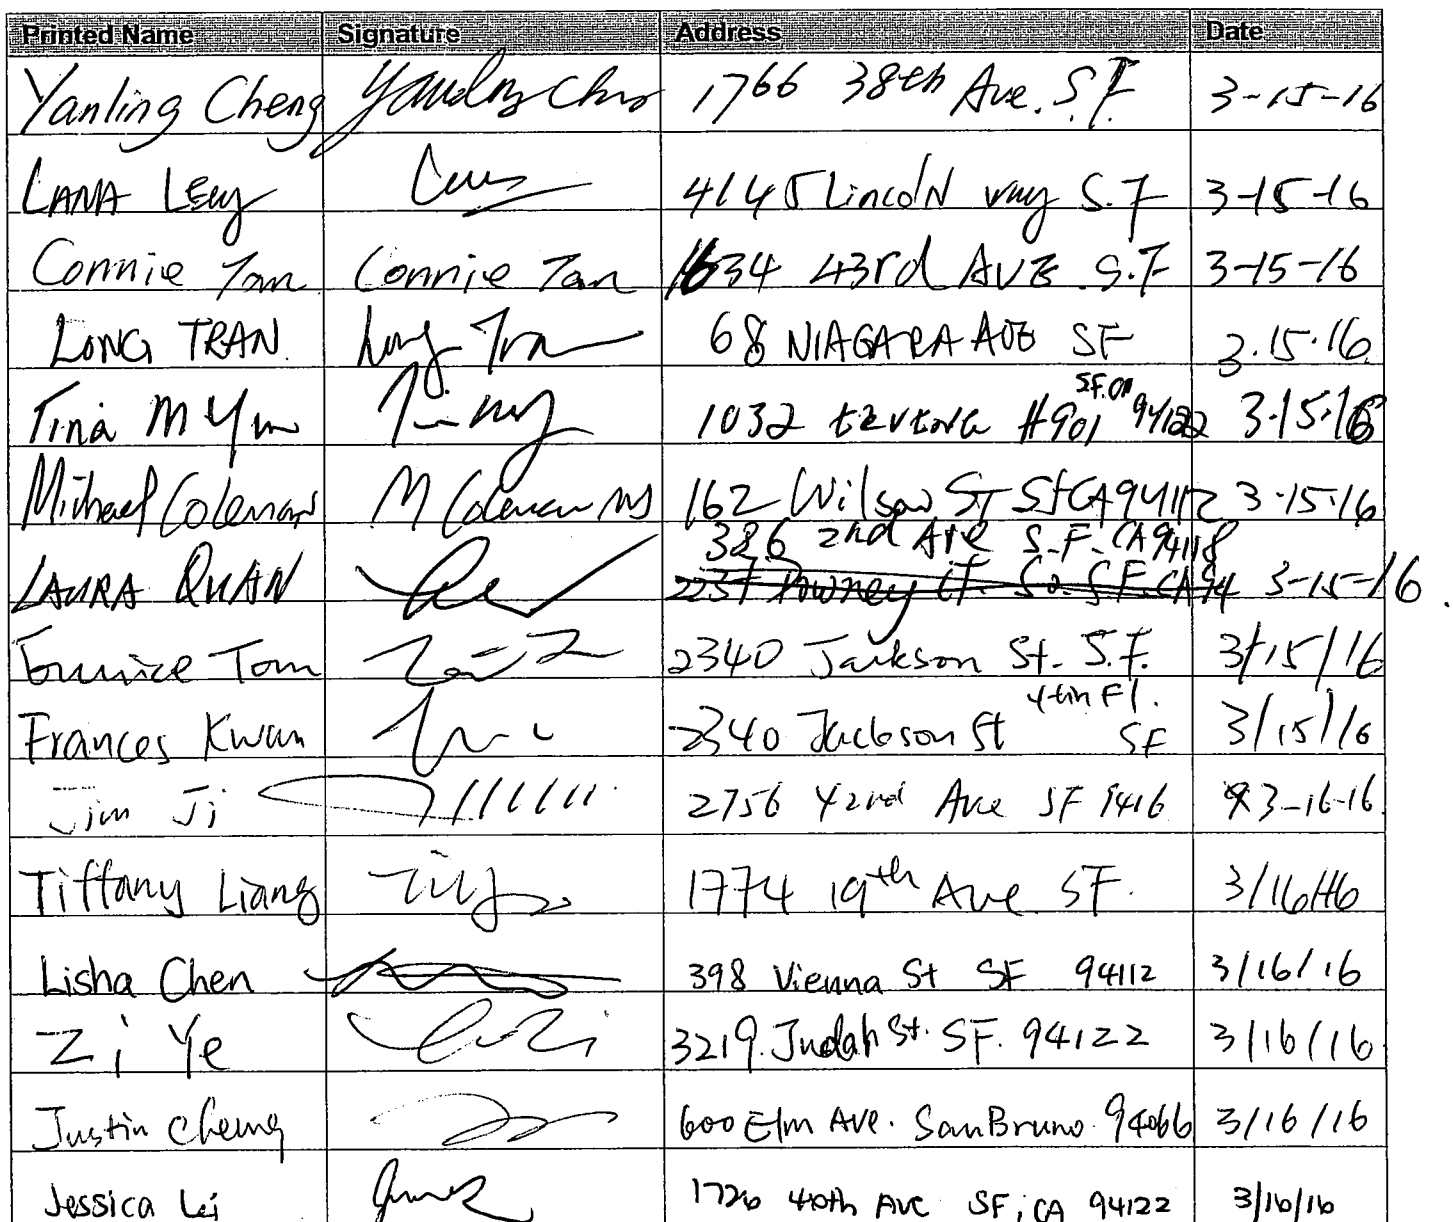 Printed Name Signature Address Date
Yanling Cheng 1766 38th Ave. S.F. 3-15-16
LANA LEUY 4145 Lincoln way S.F 3-15-16
Connie Tan Connie Tan 1634 43rd AVE. S.F 3-15-16
LONG TRAN. Long Tran 68 NIAGARA AVE SF 3.15.16
Tina M Yu 1032 #901 S.F. CA 94122 3.15.16
Michael Coleman M Coleman 162 Wilson ST SF CA 94112 3-15-16
386 2nd Ave S.F. CA 94118
LAURA QUAN 3-15-16
Eunice Tom 2340 Jackson St. S.F. 3/15/16
Frances Kwan 2340 Jackson St 4th Fl. SF 3/15/16
Jim Ji 2756 42nd Ave SF 9416 3-16-16
Tiffany Liang 1774 19th Ave SF. 3/16/16
Lisha Chen 398 Vienna St SF 94112 3/16/16
Zi Ye 3219 Judah St. SF. 94122 3/16/16
Justin Cheung 600 Elm AVE. San Bruno. 94066 3/16/16
Jessica Lei 1726 40th Ave SF, CA 94122 3/16/16